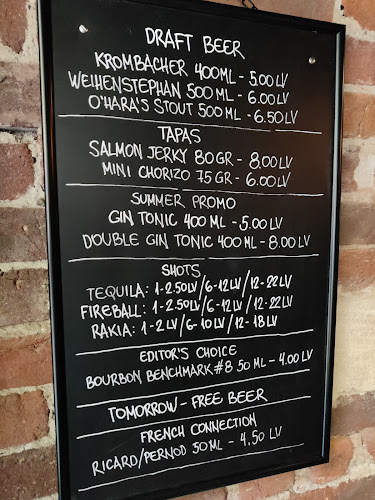 DRAFT BEER
KROMBACHER 400ML - 5.00LV
WEIHENSTEPHAN 500ML - 6.00LV
O'HARA'S STOUT 500ML - 6.50LV
TAPAS
SALMON JERKY 80GR - 8.00LV
MINI CHORIZO 75GR - 6.00LV
SUMMER PROMO
GIN TONIC 400ML - 5.00LV
DOUBLE GIN TONIC 400ML - 8.00LV
SHOTS
TEQUILA: 1-2.50LV/6-12LV/12-22LV
FIREBALL: 1-2.50LV/6-12LV/12-22LV
RAKIA: 1-2LV/6-10LV/12-18LV
EDITOR'S CHOICE
BOURBON BENCHMARK#8 50ML - 4.00LV
TOMORROW - FREE BEER
FRENCH CONNECTION
RICARD/PERNOD 50ML - 4.50LV